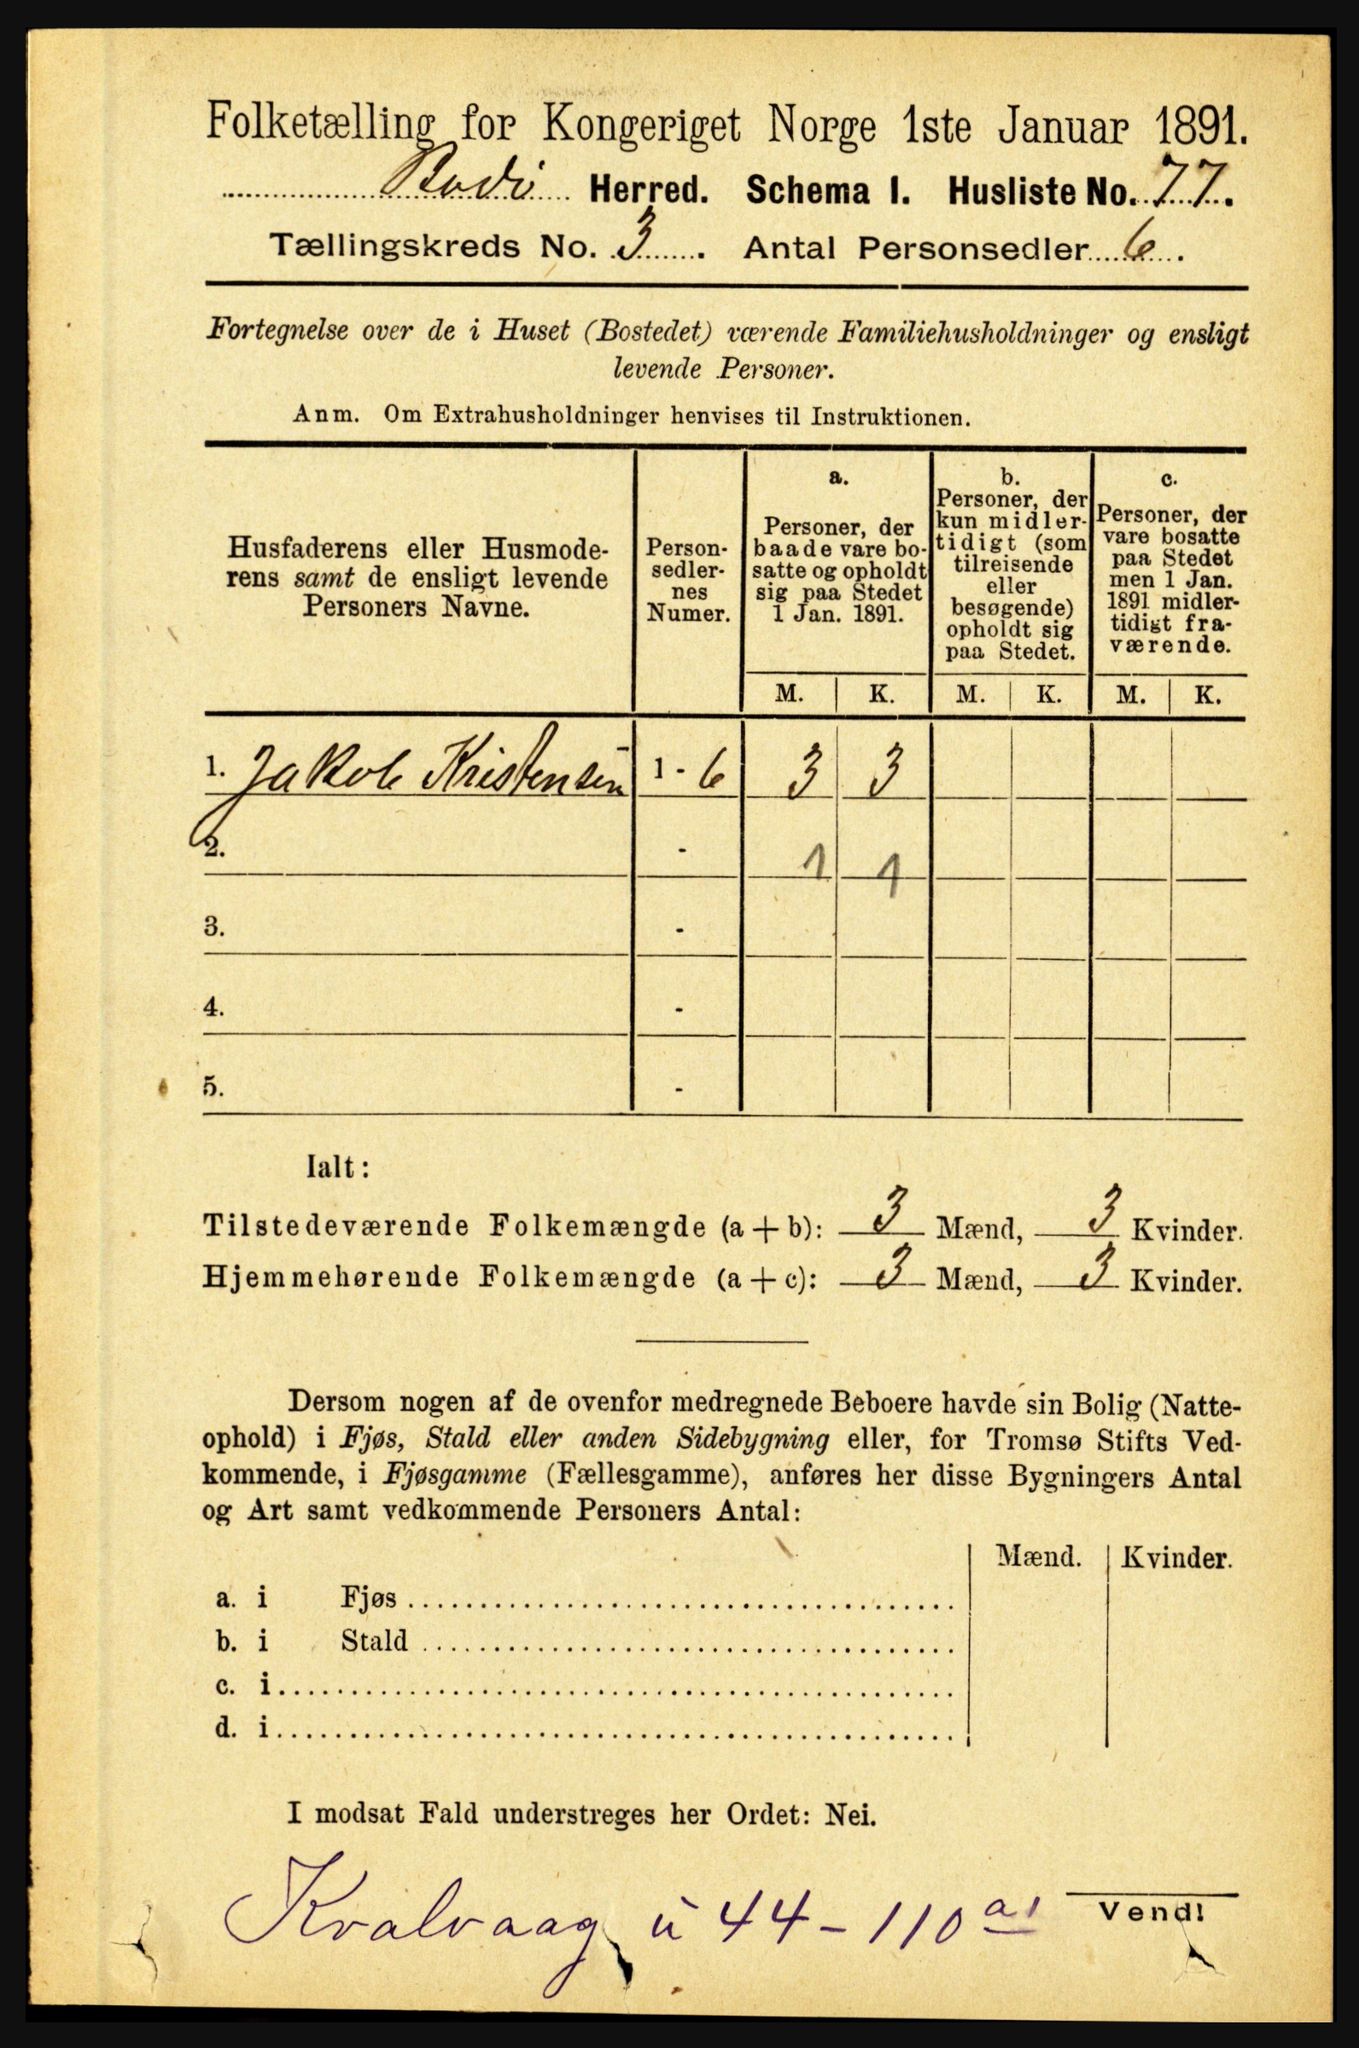 Folketælling for Kongeriget Norge 1ste Januar 1891.
Bodø Herred. Schema I. Husliste No. 77.
Tællingskreds No. 3. Antal Personsedler 6.
Fortegnelse over de i Huset (Bostedet) værende Familiehusholdninger og ensligt
levende Personer.
Anm. Om Extrahusholdninger henvises til Instruktionen.
Husfaderens eller Husmode-
rens samt de ensligt levende
Personers Navne.
Person-
sedler-
nes
Numer.
a.
Personer, der
baade vare bo-
satte og opholdt
sig paa Stedet
1 Jan. 1891.
b.
Personer, der
kun midler-
tidigt (som
tilreisende
eller
besøgende)
opholdt sig
paa Stedet.
c.
Personer, der
vare bosatte
paa Stedet
men 1 Jan.
1891 midler-
tidigt fra-
værende.
M. K. M. K. M. K.
1. Jakob Kristensen 1 - 6 3 3
2. - 1 1
3. -
4. -
5. -
Ialt:
Tilstedeværende Folkemængde (a + b): 3 Mænd, 3 Kvinder.
Hjemmehørende Folkemængde (a + c): 3 Mænd, 3 Kvinder.
Dersom nogen af de ovenfor medregnede Beboere havde sin Bolig (Natte-
ophold) i Fjøs, Stald eller anden Sidebygning eller, for Tromsø Stifts Ved-
kommende, i Fjøsgamme (Fællesgamme), anføres her disse Bygningers Antal
og Art samt vedkommende Personers Antal:
Mænd. Kvinder.
a. i Fjøs
b. i Stald
c. i
d. i
I modsat Fald understreges her Ordet: Nei.
Kvalvaag u 44 - 110 a1
Vend!